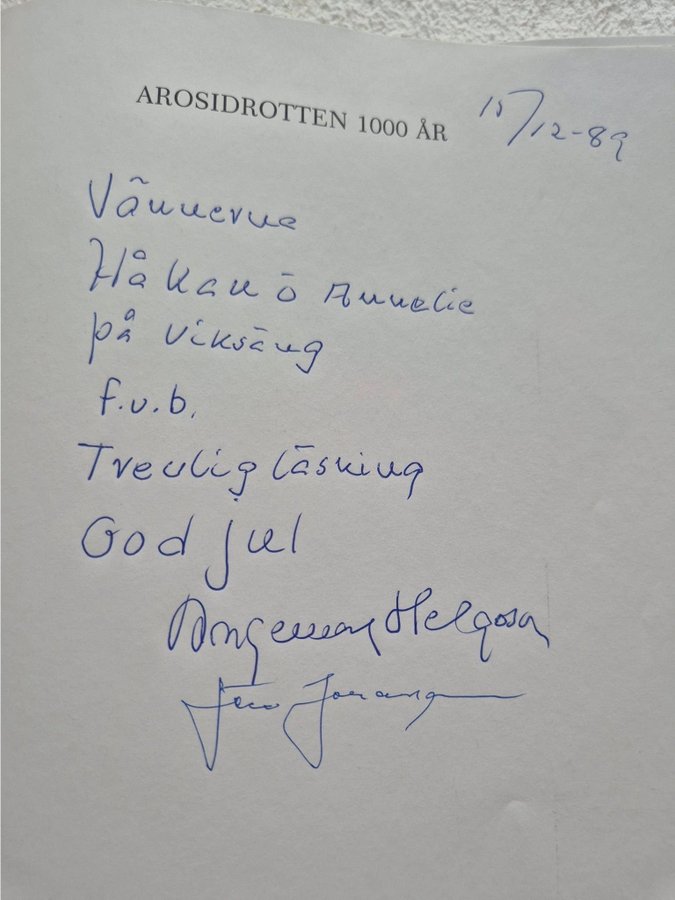 AROSIDROTTEN 1000 ÅR 15/12-89
Vännerna
Håkan ö Annelie
på Viksäng
f.v.b.
Trevlig läsning
God jul
Helgosson